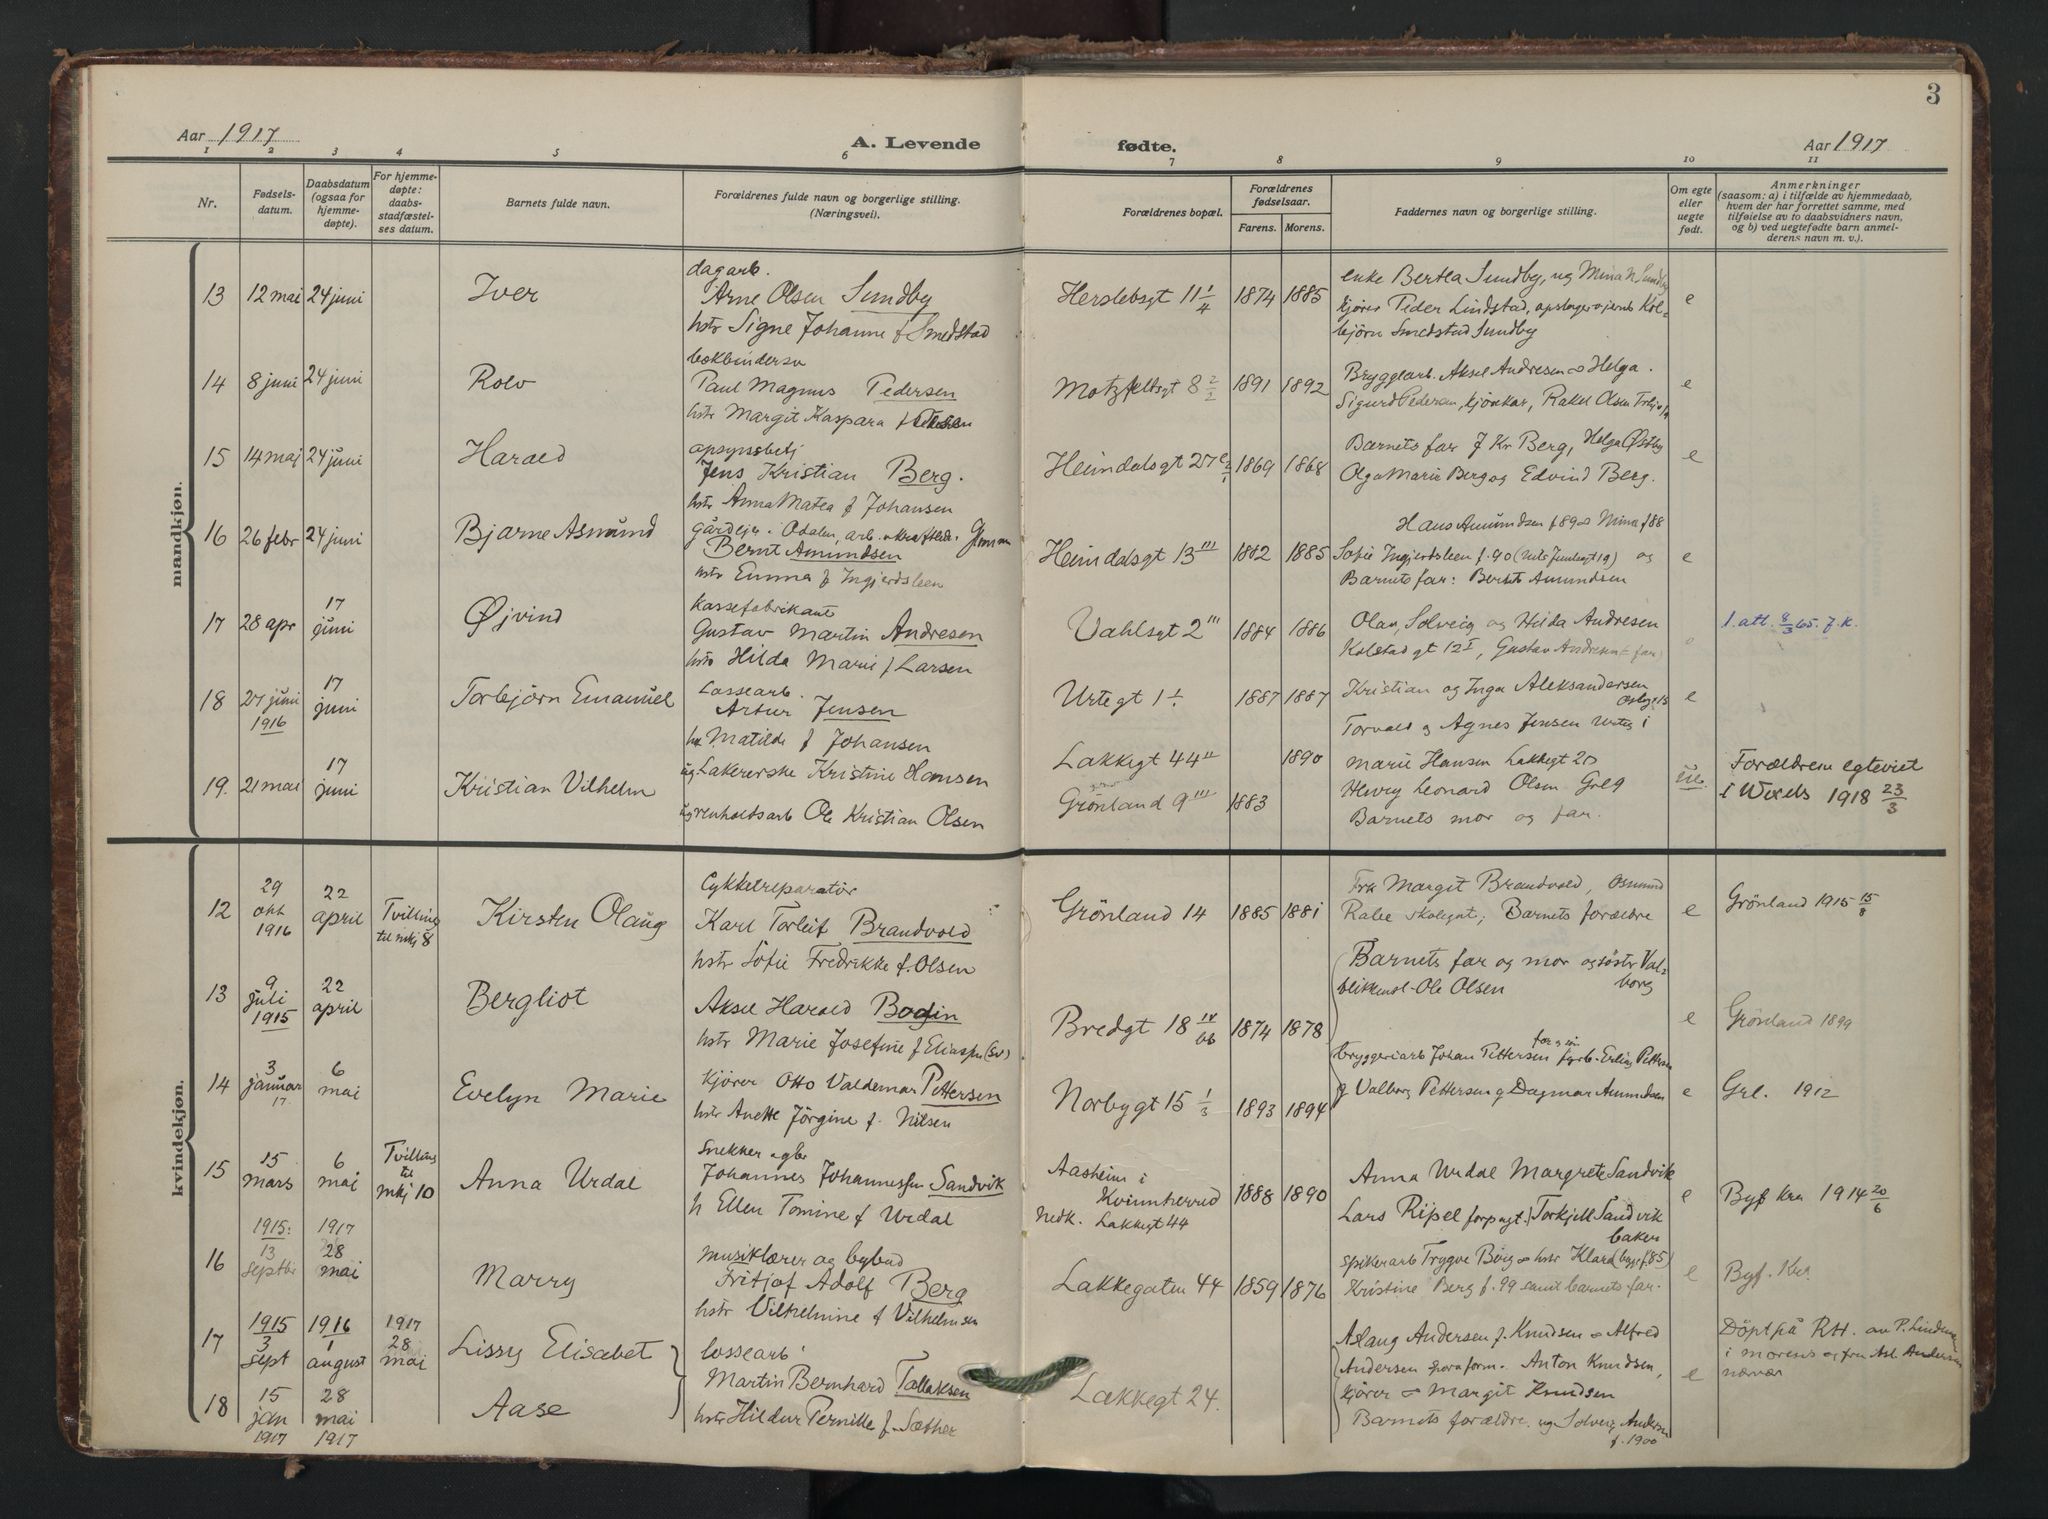 3
Aar 1917
A. Levende
fødte.
Aar 1917
1 2 3 4 5 6 7 8 9 10 11
Nr.
Fødsels-
datum.
Daabsdatum
(ogsaa for
hjemme-
døpte).
For hjemme-
døpte:
daabs-
stadfæstel-
ses datum.
Barnets fulde navn.
Forældrenes fulde navn og borgerlige stilling.
(Næringsvei).
Forældrenes bopæl.
Forældrenes
fødselsaar.
Farens. Morens.
Faddernes navn og borgerlige stilling.
Om egte
eller
uegte
født.
Anmerkninger
(saasom: a) i tilfælde av hjemmedaab,
hvem der har forrettet samme, med
tilføielse av to daabsvidners navn,
og b) ved uegtefødte barn anmel-
derens navn m. v.).
mandkjøn.
13 12 mai 24 juni Iver
dagarb.
Arne Olsen Sundby
hstr Signe Johanne f Smedstad
Herslebsgt 11 1/4 1874 1885
enke Bertea Sundby, ug Mina N Sundby
kjører Peder Lindstad,
bjørn Smedstad Sundby
e
14 8 juni 24 juni Rolv
bokbindersv
Paul Magnus Pedersen
hstr Margit Kaspara f
Motzfeltsgt 8 2/2 1891 1892
Bryggearb. Aksel Andresen o Helga.
Sigurd Pedersen, Rakel Olsen
e
15 14 maj 24 juni Harald
opsynsbetj
Jens Kristian Berg.
hstr Anna Matea f Johansen
Heimdalsgt 27 1869 1868
Barnets far J Kr Berg, Helga Østby
Olga Marie Berg og Edvind Berg.
e
16 26 febr 24 juni Bjarne Asmund
gårdejer i Odalen, arb.
Bernt Amundsen
hstr Emma f Ingjerdsleen
Heimdalsgt 13 III 1882 1885
Hans Amundsen f 89 o Mina f 88
Sofie Ingjerdsleen f. 90 og
Barnets far: Bernt Amundsen
e
17 28 apr 17 juni Øjvind
Kassefabrikant
Gustav Martin Andresen
hstr Hilda Marie f Larsen
Vahlsgt 2 III 1884 1886
Olav, Solveig og Hilda Andresen
Kolstadgt 12 I, Gustav Andresen far
e
1. att. 8/3 65. J.K.
18 27 juni 1916 17 juni Torbjörn Emanuel
Lossearb.
Artur Jensen
h Matilde f Johansen
Urtegt 1 1887 1887
Kristian og Inga Aleksandersen
Torvald og Agnes Jensen
e
19. 21 mai 17 juni Kristian Vilhelm
ug Lakererske Kristine Hansen
ug renholdsarb Ole Kristian Olsen
Lakkegt 44 II 1890
Grönland 9 III 1883
Marie Hansen Lakkegt 20
Henry Leonard Olsen Grl 9
Barnets mor og far.
ue
Forældrene egteviet
i Wexels 1918 23/3
kvindekjøn.
12 29 okt 1916 22 april
Tvilling
til mkj 8
Kirsten Olaug
Cykkelreparatör
Karl Torleif Brandvold
hstr Sofie Fredrikke f. Olsen
Grönland 14 1885 1881
Frk Margit Brandvold, Osmund
Rabe skolegut; Barnets forældre
e
Grönland 1915 15/8
13 9 juli 1915 22 april Bergliot
Aksel Harald Bodin
hstr Marie Josefine f Eliassen (Sv)
Bredgt 18 1874 1878
Barnets far og mor og söstr Val-
borg
blikkensl. Ole Olsen
e
Grönland 1899
14 3 januar 17. 6 mai Evelyn Marie
kjører Otto Valdemar Pettersen
hstr Anette Jörgine f. Nilsen
Norbygt 15 1/3 1893 1894
bryggeriarb Johan Pettersen Erling Pettersen
g Valborg Pettersen g Dagmar Amundsen
e
Grl. 1912
15 15 mars 6 mai
Tvilling
til
mkj 10
Anna Urdal
Snekker
Johannes Johannessen Sandvik
h Ellen Tomine f Urdal
Aasheim i
Kvinnherred
Nedk. Lakkegt 44
1888 1890
Anna Urdal Margrete Sandvik
Lars Ripel Torkjell Sandvik
baker
e
Byf Kra 1914 20/6
16 1915: 13 septbr 1917 28 mai Marry
musiklærer og bybud
Fritjof Adolf Berg
hstr Vilhelmine f Vilhelmsen
Lakkegaten 44 1859 1876
spikerarb Trygve Berg o hstr Klara
Kristine Berg f. 99 samt barnets far.
e
Byf. Kra
17 1915 3 sept 1916 1 august 1917 28 mai Lissy Elisabet
18 15 jan 1917 28 mai 1917 Aase
lossearb
Martin Bernhard Tallaksen
hstr Hildur Pernille f. Sæther
Lakkegt 24.
Aslaug Andersen f. Knudsen o Alfred
Andersen Anton Knudsen,
kjører o Margit Knudsen
Barnets forældre. ug Solveig Andersen
f. 1900
e
Döpt på RH. av P. Lindemann
i morens og fru Asl. Andersens
nærvær